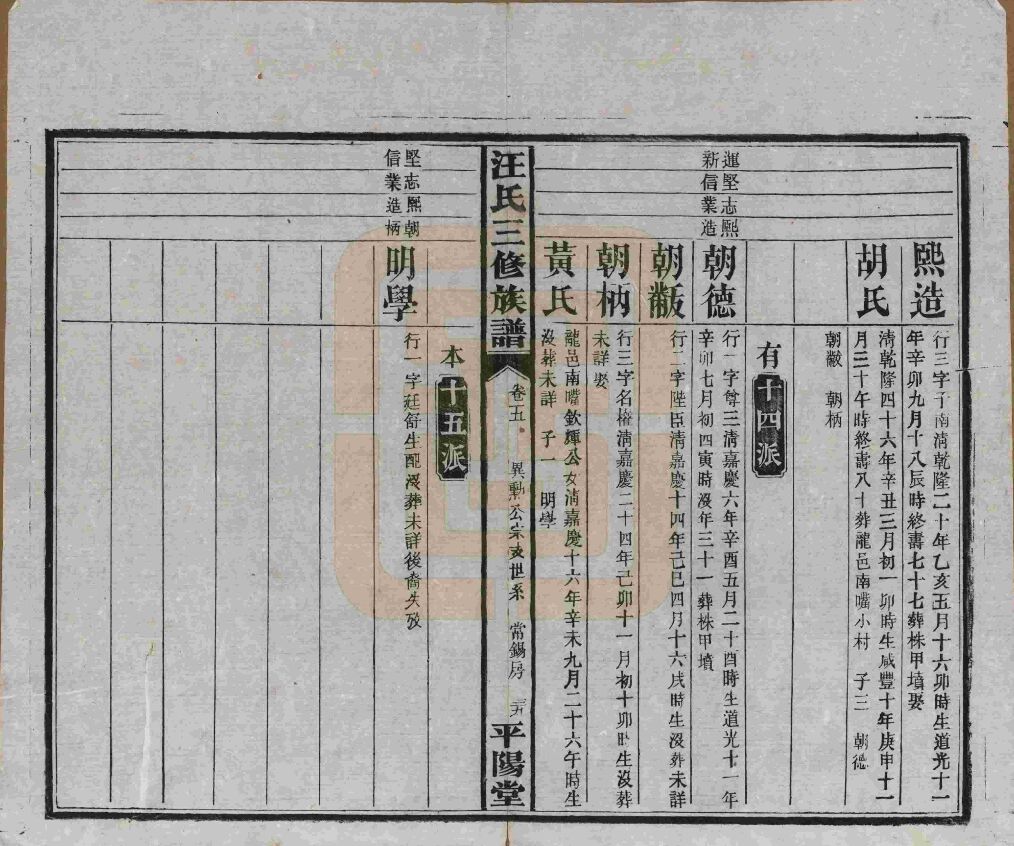 進堅志熙
新信業造
熙造
行三字子南清乾隆二十年乙亥五月十六卯時生道光十一
年辛卯九月十八辰時終壽七十七葬株甲墳娶
胡氏
清乾隆四十六年辛丑三月初一卯時生咸豐十年庚申十一
月三十午時終壽八十葬龍邑南嘴小村 子三 朝德
朝黻 朝柄
有十四派
朝德
行一字尊三清嘉慶六年辛酉五月二十酉時生道光十一年
辛卯七月初四寅時沒年三十一葬株甲墳
朝黻
行二字陛臣清嘉慶十四年己巳四月十六戌時生沒葬未詳
朝柄
行三字名權清嘉慶二十四年己卯十一月初十卯時生沒葬
未詳娶
黃氏
龍邑南嘴欽輝公女清嘉慶十六年辛未九月二十六午時生
沒葬未詳 子一 明學
汪氏三修族譜
卷五 異勳公宗支世系 常錫房
平陽堂
本十五派
堅志熙朝
信業造柄
明學
行一字廷舒生配沒葬未詳後裔失攷